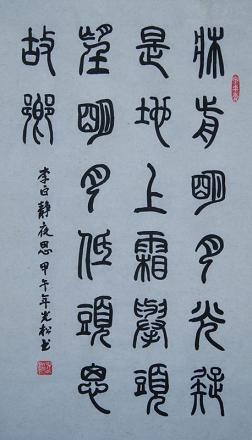 牀前明月光疑
是地上霜舉頭
望明月低頭思
故鄉
李白靜夜思甲午年光松书